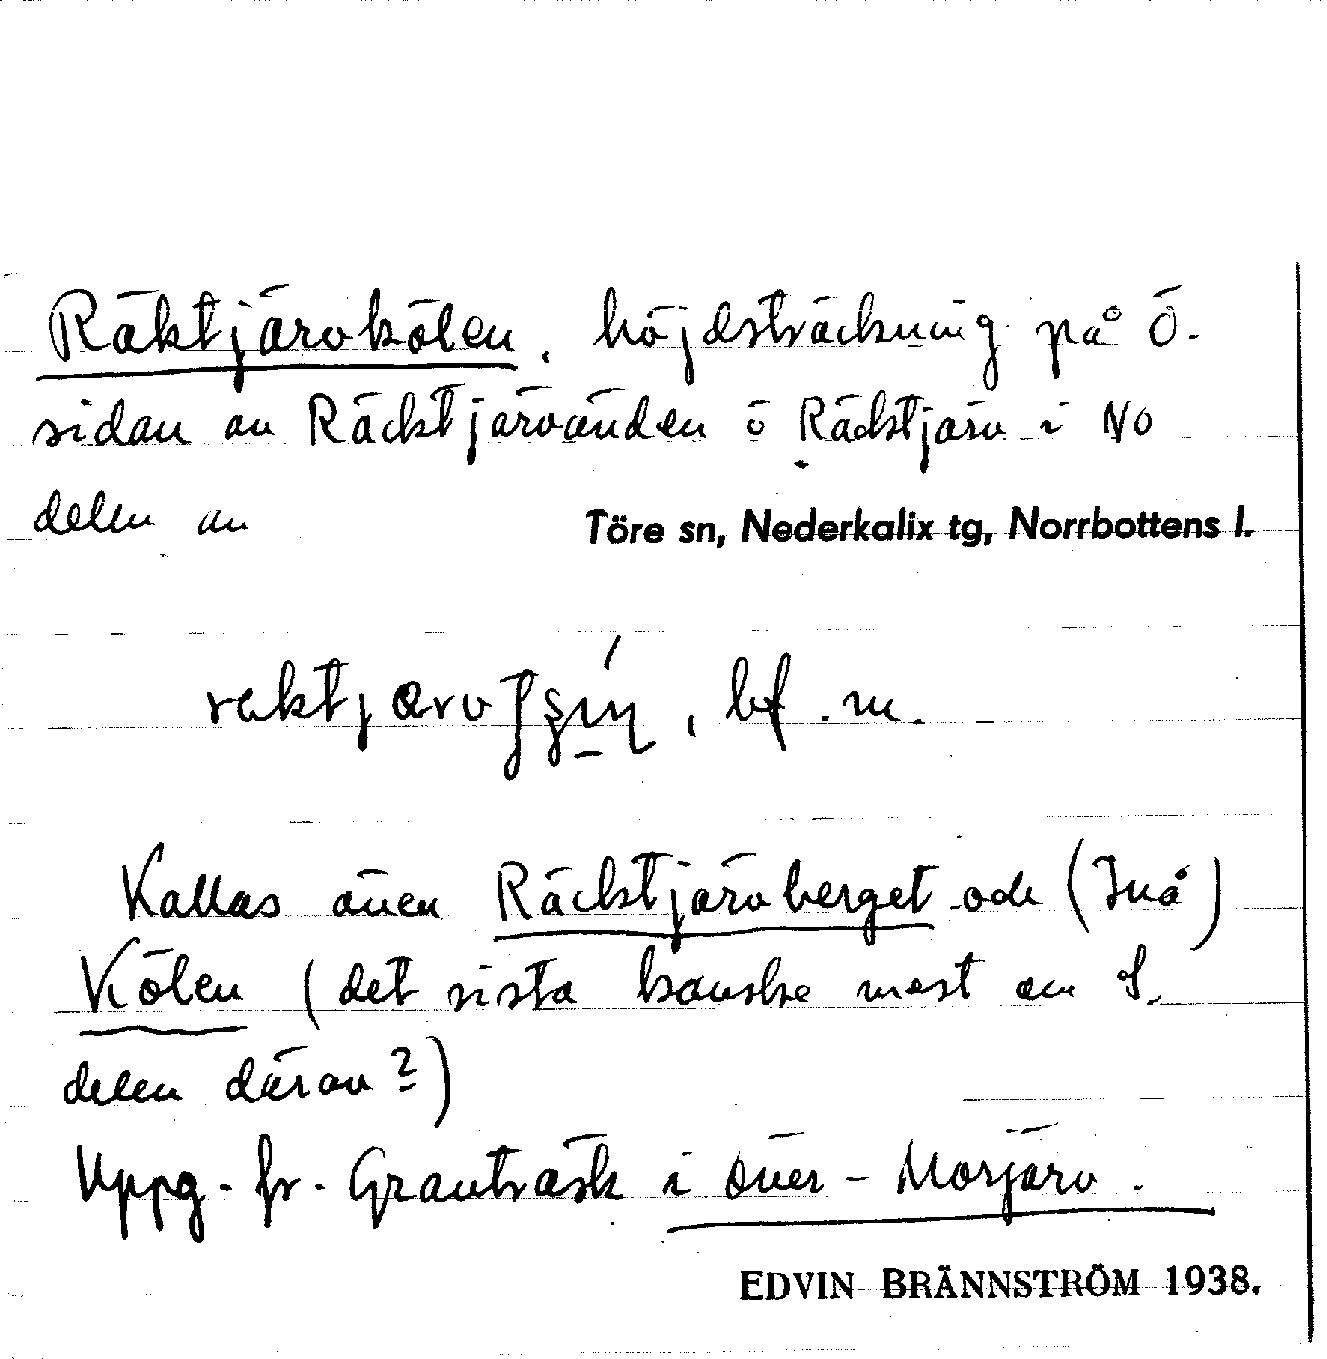 Räktjärvkölen, höjdsträckning på Ö.
sidan av Räcktjärvänden ö Räcktjärv i NO
delen av Töre sn, Nederkalix tg, Norrbottens l.
bf. m.
Kallas även Räcktjärvberget och (Inå)
Kölen (det sista kanske mest om S.
delen därav?)
Uppg. fr. Granträsk i Över-Morjärv.
EDVIN BRÄNNSTRÖM 1938.